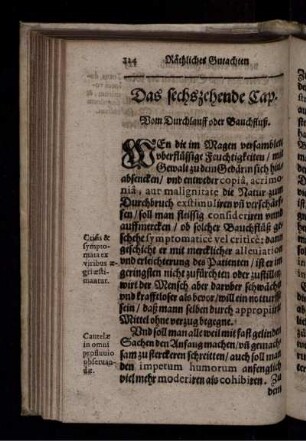 214 Räthliches Gutachten
Das sechszehende Cap.
Vom Durchlauff oder Bauchfluß.
WEn die im Magen versamblete
vberflüssige Feuchtigkeiten / mit
Gewalt zu dem Gedärm sich
absencken / vnd entweder copiâ, acrimo-
niâ, aut malignitate die Natur zum
Durchbruch exstimuliren vñ verschaf-
fen / soll man fleissig consideriren vnnd
auffmercken / ob solcher Bauchfluß ge-
schehe symptomaticè vel criticè: dann
geschicht er mit mercklicher alleviation
vnd erleichterung des Patienten / ist er im
geringsten nicht zufürchten oder zustillen
wirt der Mensch aber darüber schwächer
vnd krafftloser als bevor / will ein notturfft
sein / daß mann selben durch appropiirte
Mittel ohne verzug begegne.
Vnd soll man alle weil mit fast gelinden
Sachen den Anfang machen / vñ gemach-
sam zu sterckeren schreitten / auch soll man
den impetum humorum anfenglich
viel mehr moderiren als cohibiren. Zu
dem
Crisis &
sympto-
mata ex
viribus æ-
gri æsti-
mantur.
Cautelæ
in omni
profluvio
observan-
dæ.